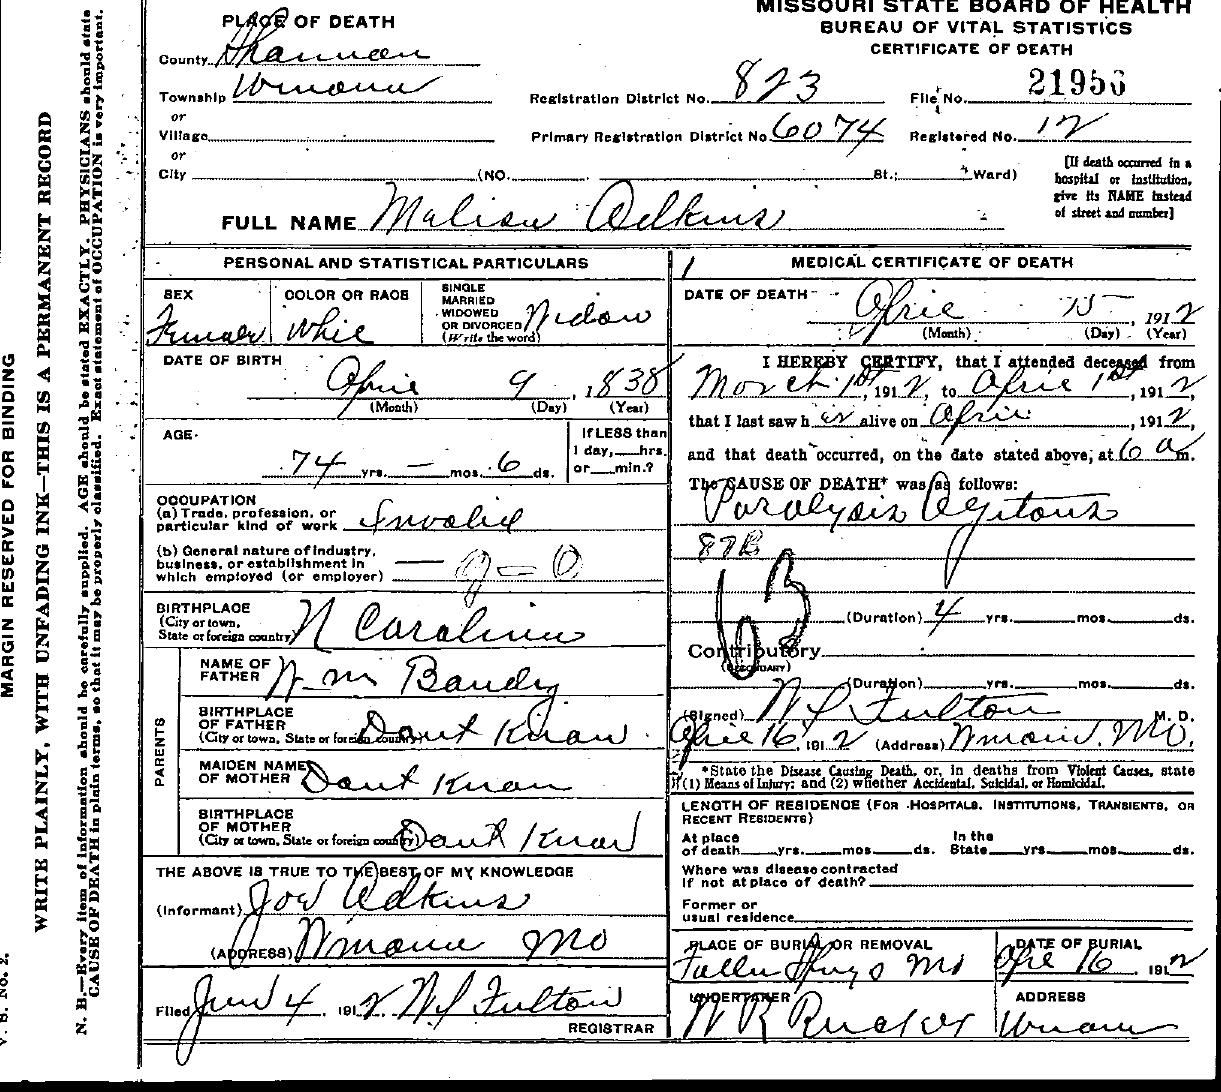 MISSOURI STATE BOARD OF HEALTH
BUREAU OF VITAL STATISTICS
CERTIFICATE OF DEATH
PLACE OF DEATH
County Shannon
Township Winona
or
Village
or
City (NO. St.; Ward)
Registration District No. 823
File No. 21956
Primary Registration District No. 6074
Registered No. 12
[If death occurred in a
hospital or institution,
give its NAME instead
of street and number]
FULL NAME Malisa Adkins
PERSONAL AND STATISTICAL PARTICULARS
SEX
Female
COLOR OR RACE
White
SINGLE
MARRIED
WIDOWED
OR DIVORCED
(Write the word)
Widow
DATE OF BIRTH
April 9, 1838
(Month) (Day) (Year)
AGE
74 yrs. — mos. 6 ds.
If LESS than
1 day, hrs.
or min.?
OCCUPATION
(a) Trade, profession, or
particular kind of work Invalid
(b) General nature of industry,
business, or establishment in
which employed (or employer) —
BIRTHPLACE
(City or town,
State or foreign country) N Carolina
PARENTS
NAME OF
FATHER Wm Bandy
BIRTHPLACE
OF FATHER
(City or town, State or foreign country) Dont Know
MAIDEN NAME
OF MOTHER Dont Know
BIRTHPLACE
OF MOTHER
(City or town, State or foreign country) Dont Know
THE ABOVE IS TRUE TO THE BEST OF MY KNOWLEDGE
(Informant) Joe Adkins
(ADDRESS) Winona Mo
Filed Jun 4, 1912 Fulton
REGISTRAR
MEDICAL CERTIFICATE OF DEATH
DATE OF DEATH
April 15, 1912
(Month) (Day) (Year)
I HEREBY CERTIFY, that I attended deceased from
March 1st, 1912, to April 1st, 1912,
that I last saw her alive on April, 1912,
and that death occurred, on the date stated above, at 6 a m.
The CAUSE OF DEATH* was as follows:
Paralysis Agitans
87B
63
(Duration) 4 yrs. mos. ds.
Contributory
(SECONDARY)
(Duration) yrs. mos. ds.
(Signed) Fulton M. D.
April 16, 1912 (Address) Winona, Mo.
*State the Disease Causing Death, or, in deaths from Violent Causes, state
(1) Means of Injury; and (2) whether Accidental, Suicidal, or Homicidal.
LENGTH OF RESIDENCE (FOR HOSPITALS, INSTITUTIONS, TRANSIENTS, OR
RECENT RESIDENTS)
At place
of death yrs. mos. ds.
In the
State yrs. mos. ds.
Where was disease contracted
if not at place of death?
Former or
usual residence
PLACE OF BURIAL OR REMOVAL
Mo
DATE OF BURIAL
April 16, 1912
UNDERTAKER
W R Rucker
ADDRESS
Winona
MARGIN RESERVED FOR BINDING
WRITE PLAINLY, WITH UNFADING INK—THIS IS A PERMANENT RECORD
N. B.—Every item of information should be carefully supplied. AGE should be stated EXACTLY. PHYSICIANS should state
CAUSE OF DEATH in plain terms, so that it may be properly classified. Exact statement of OCCUPATION is very important.
V. S. No. 2.